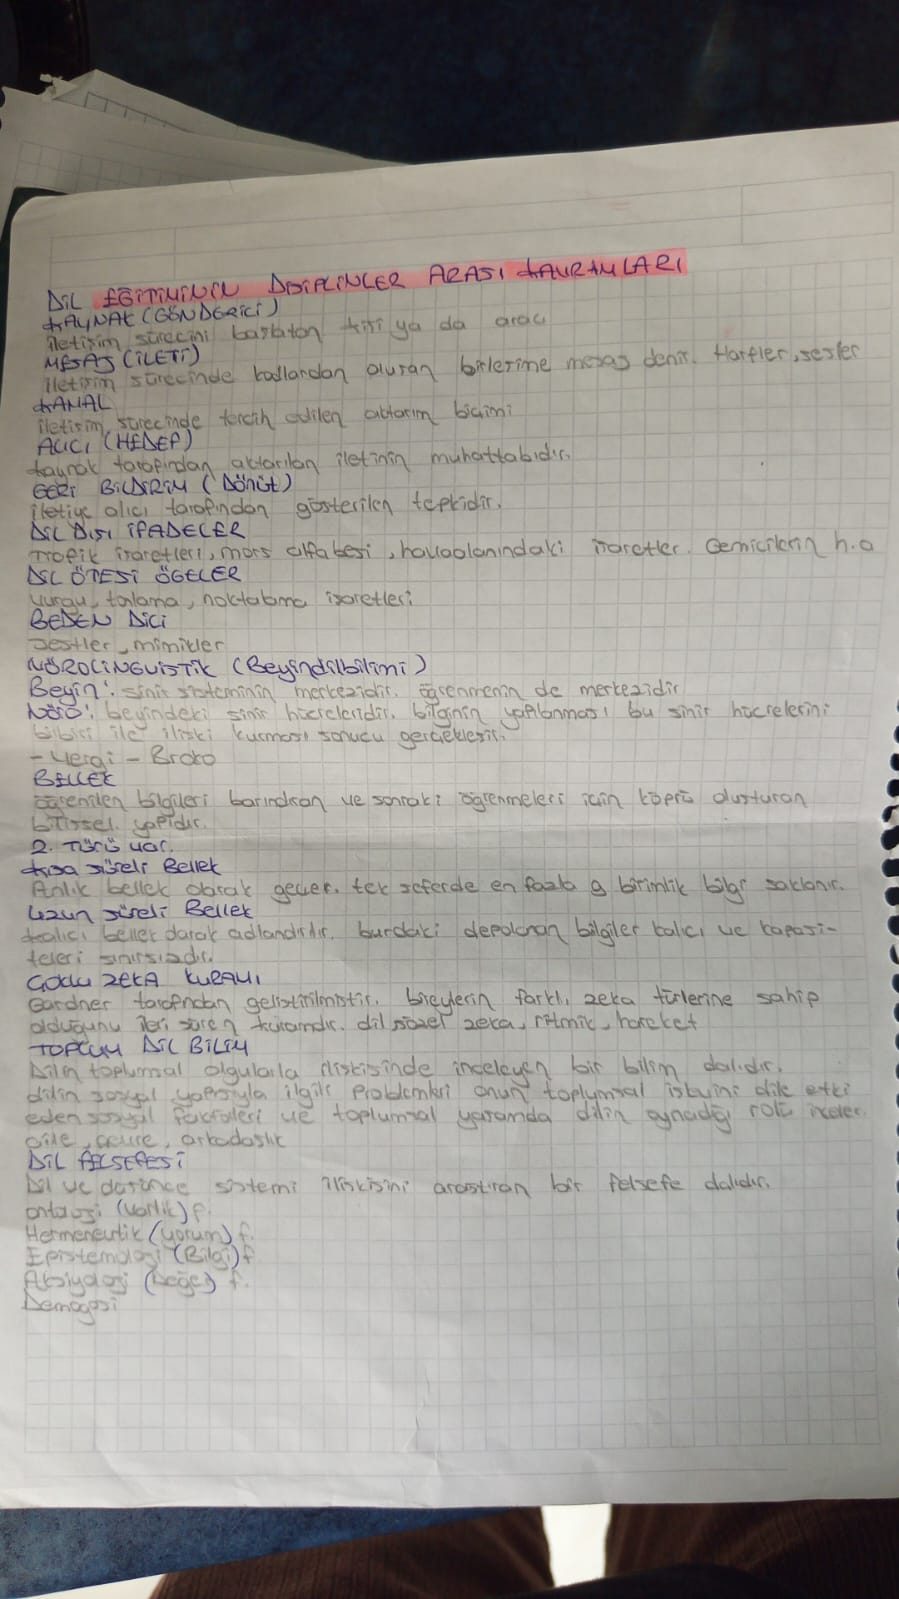 DİL EĞİTİMİNİN DİSİPLİNLER ARASI KAVRAMLARI
KAYNAK (GÖNDERİCİ)
iletişim sürecini başlatan kişi ya da aracı
MESAJ (İLETİ)
iletişim sürecinde kodlardan oluşan birlerine mesaj denir. Harfler, sesler
KANAL
iletişim sürecinde tercih edilen aktarım biçimi
ALICI (HEDEF)
kaynak tarafından aktarılan iletinin muhattabıdır.
GERİ BİLDİRİM (Dönüt)
iletiye alıcı tarafından gösterilen tepkidir.
DİL DIŞI İFADELER
Trafik işaretleri, mors alfabesi, havaalanındaki işaretler. Gemicilerin h.a
DİL ÖTESİ ÖGELER
vurgu, tonlama, noktalama işaretleri
BEDEN DİLİ
Jestler, mimikler
NÖROLİNGUİSTİK (Beyindilbilimi)
Beyin: sinir sisteminin merkezidir. öğrenmenin de merkezidir
Nöro: beyindeki sinir hücreleridir. bilginin yapılanması bu sinir hücrelerini
bibiri ile ilişki kurması sonucu gerçekleşir.
- Vergi - Broko
BELLEK
öğrenilen bilgileri barındıran ve sonraki öğrenmeleri için köprü oluşturan
bilişsel yapıdır.
2. Türü var.
Kısa süreli Bellek
Anlık bellek olarak geçer. tek seferde en fazla 9 birimlik bilgi saklanır.
Uzun süreli Bellek
kalıcı bellek olarak adlandırılır. burdaki depolanan bilgiler kalıcı ve kapasi-
teleri sınırsızdır.
ÇOKLU ZEKA KURAMI
Gardner tarafından geliştirilmiştir. bireylerin farklı zeka türlerine sahip
olduğunu ileri süren kuramdır. dil sözel zeka, ritmik, hareket
TOPLUM DİL BİLİM
Dilin toplumsal olgularla ilişkisinde inceleyen bir bilim dalıdır.
dilin sosyal yapısıyla ilgili problemleri onun toplumsal dile etki
eden sosyal faktörleri ve toplumsal yaşamda dilin oynadığı rolü inceler.
aile, çevre, arkadaşlık
DİL FELSEFESİ
Dil ve düşünce sistemi ilişkisini araştıran bir felsefe dalıdır.
ontoloji (varlık) f.
Hermeneutik (yorum) f.
Epistemoloji (Bilgi) f.
Aksiyoloji (Değer) f.
Demagoji